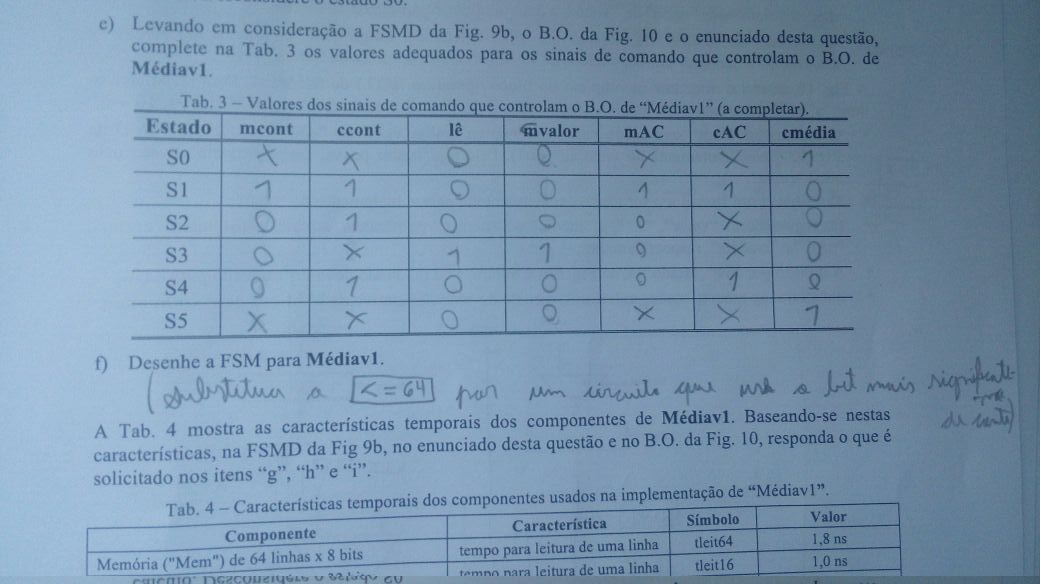 e) Levando em consideração a FSMD da Fig. 9b, o B.O. da Fig. 10 e o enunciado desta questão,
complete na Tab. 3 os valores adequados para os sinais de comando que controlam o B.O. de
Médiav1.
Tab. 3 – Valores dos sinais de comando que controlam o B.O. de “Médiav1” (a completar).
Estado mcont ccont lê mvalor mAC cAC cmédia
S0 X X 0 0 X X 1
S1 1 1 0 0 1 1 0
S2 0 1 0 0 0 X 0
S3 0 X 1 1 0 X 0
S4 0 1 0 0 0 1 0
S5 X X 0 0 X X 1
f) Desenhe a FSM para Médiav1.
(substitua a <=64 por um circuito que usa o bit mais significante
de cont)
A Tab. 4 mostra as características temporais dos componentes de Médiav1. Baseando-se nestas
características, na FSMD da Fig 9b, no enunciado desta questão e no B.O. da Fig. 10, responda o que é
solicitado nos itens “g”, “h” e “i”.
Tab. 4 – Características temporais dos componentes usados na implementação de “Médiav1”.
Componente Característica Símbolo Valor
Memória ("Mem") de 64 linhas x 8 bits tempo para leitura de uma linha tleit64 1,8 ns
tempo para leitura de uma linha tleit16 1,0 ns